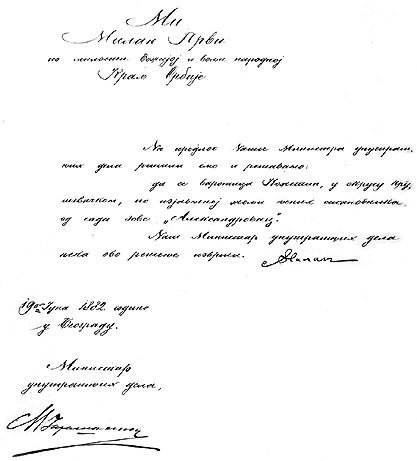 Ми
Милан Први
по милости Божијој и вољи народној
Краљ Србије
На предлог Нашег Министра унутраш
њих дела решили смо и решавамо:
да се варошица Кожетин, у округу кру
шевачком, по изјављеној жељи њених становника,
од сада зове „Александровац".
Наш Министар унутрашњих дела
нека ово решење изврши. Милан
19ог Јуна 1882 године
у Београду.
Министар
унутрашњих дела,